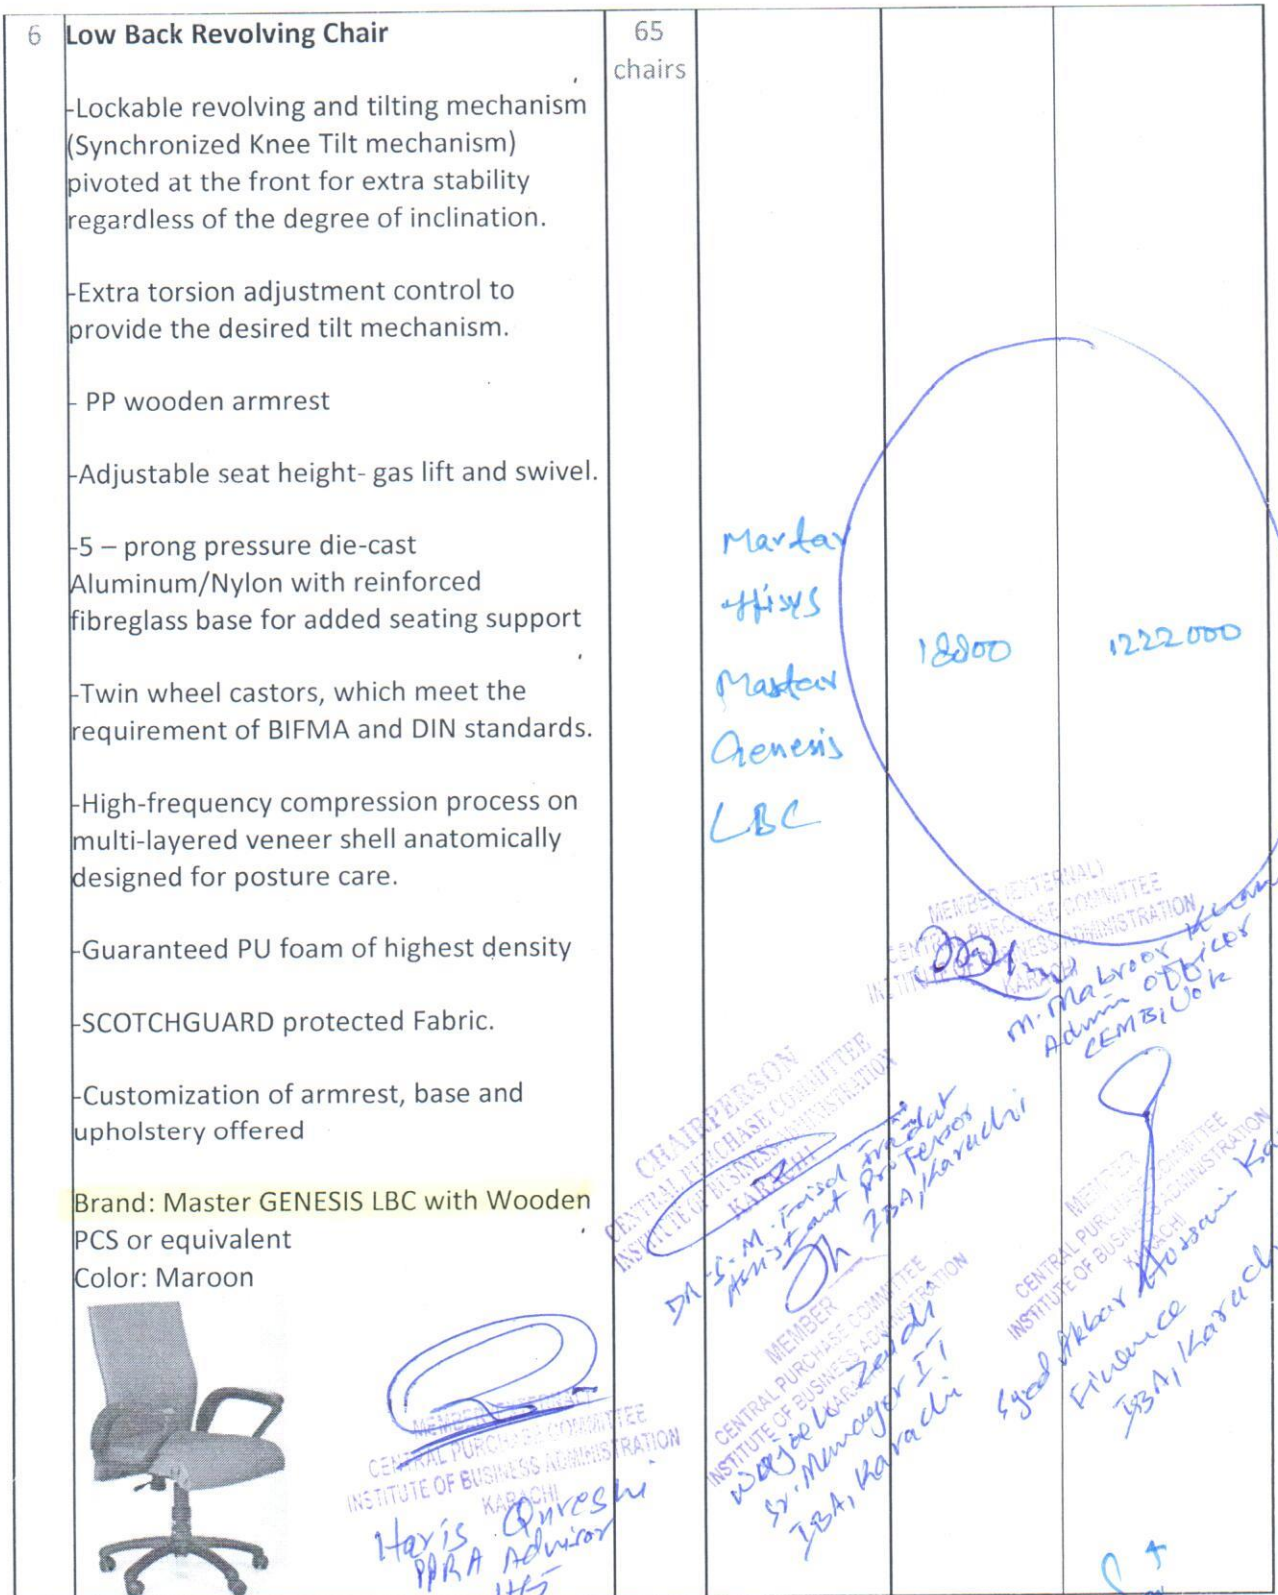 6
Low Back Revolving Chair
65
chairs
-Lockable revolving and tilting mechanism
(Synchronized Knee Tilt mechanism)
pivoted at the front for extra stability
regardless of the degree of inclination.
-Extra torsion adjustment control to
provide the desired tilt mechanism.
- PP wooden armrest
-Adjustable seat height- gas lift and swivel.
-5 – prong pressure die-cast
Aluminum/Nylon with reinforced
fibreglass base for added seating support
-Twin wheel castors, which meet the
requirement of BIFMA and DIN standards.
-High-frequency compression process on
multi-layered veneer shell anatomically
designed for posture care.
-Guaranteed PU foam of highest density
-SCOTCHGUARD protected Fabric.
-Customization of armrest, base and
upholstery offered
Brand: Master GENESIS LBC with Wooden
PCS or equivalent
Color: Maroon
Master
Genesis
LBC
18800
1222000
MEMBER (EXTERNAL)
CENTRAL PURCHASE COMMITTEE
INSTITUTE OF BUSINESS ADMINISTRATION
KARACHI
M. Mabroor
Admin Officer
CEMB, UoK
CHAIRPERSON
CENTRAL PURCHASE COMMITTEE
INSTITUTE OF BUSINESS ADMINISTRATION
KARACHI
Dr. S. M. Faisal Iradat
Assistant Professor
IBA, Karachi
MEMBER
CENTRAL PURCHASE COMMITTEE
INSTITUTE OF BUSINESS ADMINISTRATION
KARACHI
Syed Akbar Hussain
Finance
IBA, Karachi
MEMBER
CENTRAL PURCHASE COMMITTEE
INSTITUTE OF BUSINESS ADMINISTRATION
KARACHI
Zaidi
Sr. Manager IT
IBA, Karachi
MEMBER (EXTERNAL)
CENTRAL PURCHASE COMMITTEE
INSTITUTE OF BUSINESS ADMINISTRATION
KARACHI
Haris Qureshi
PPRA Advisor